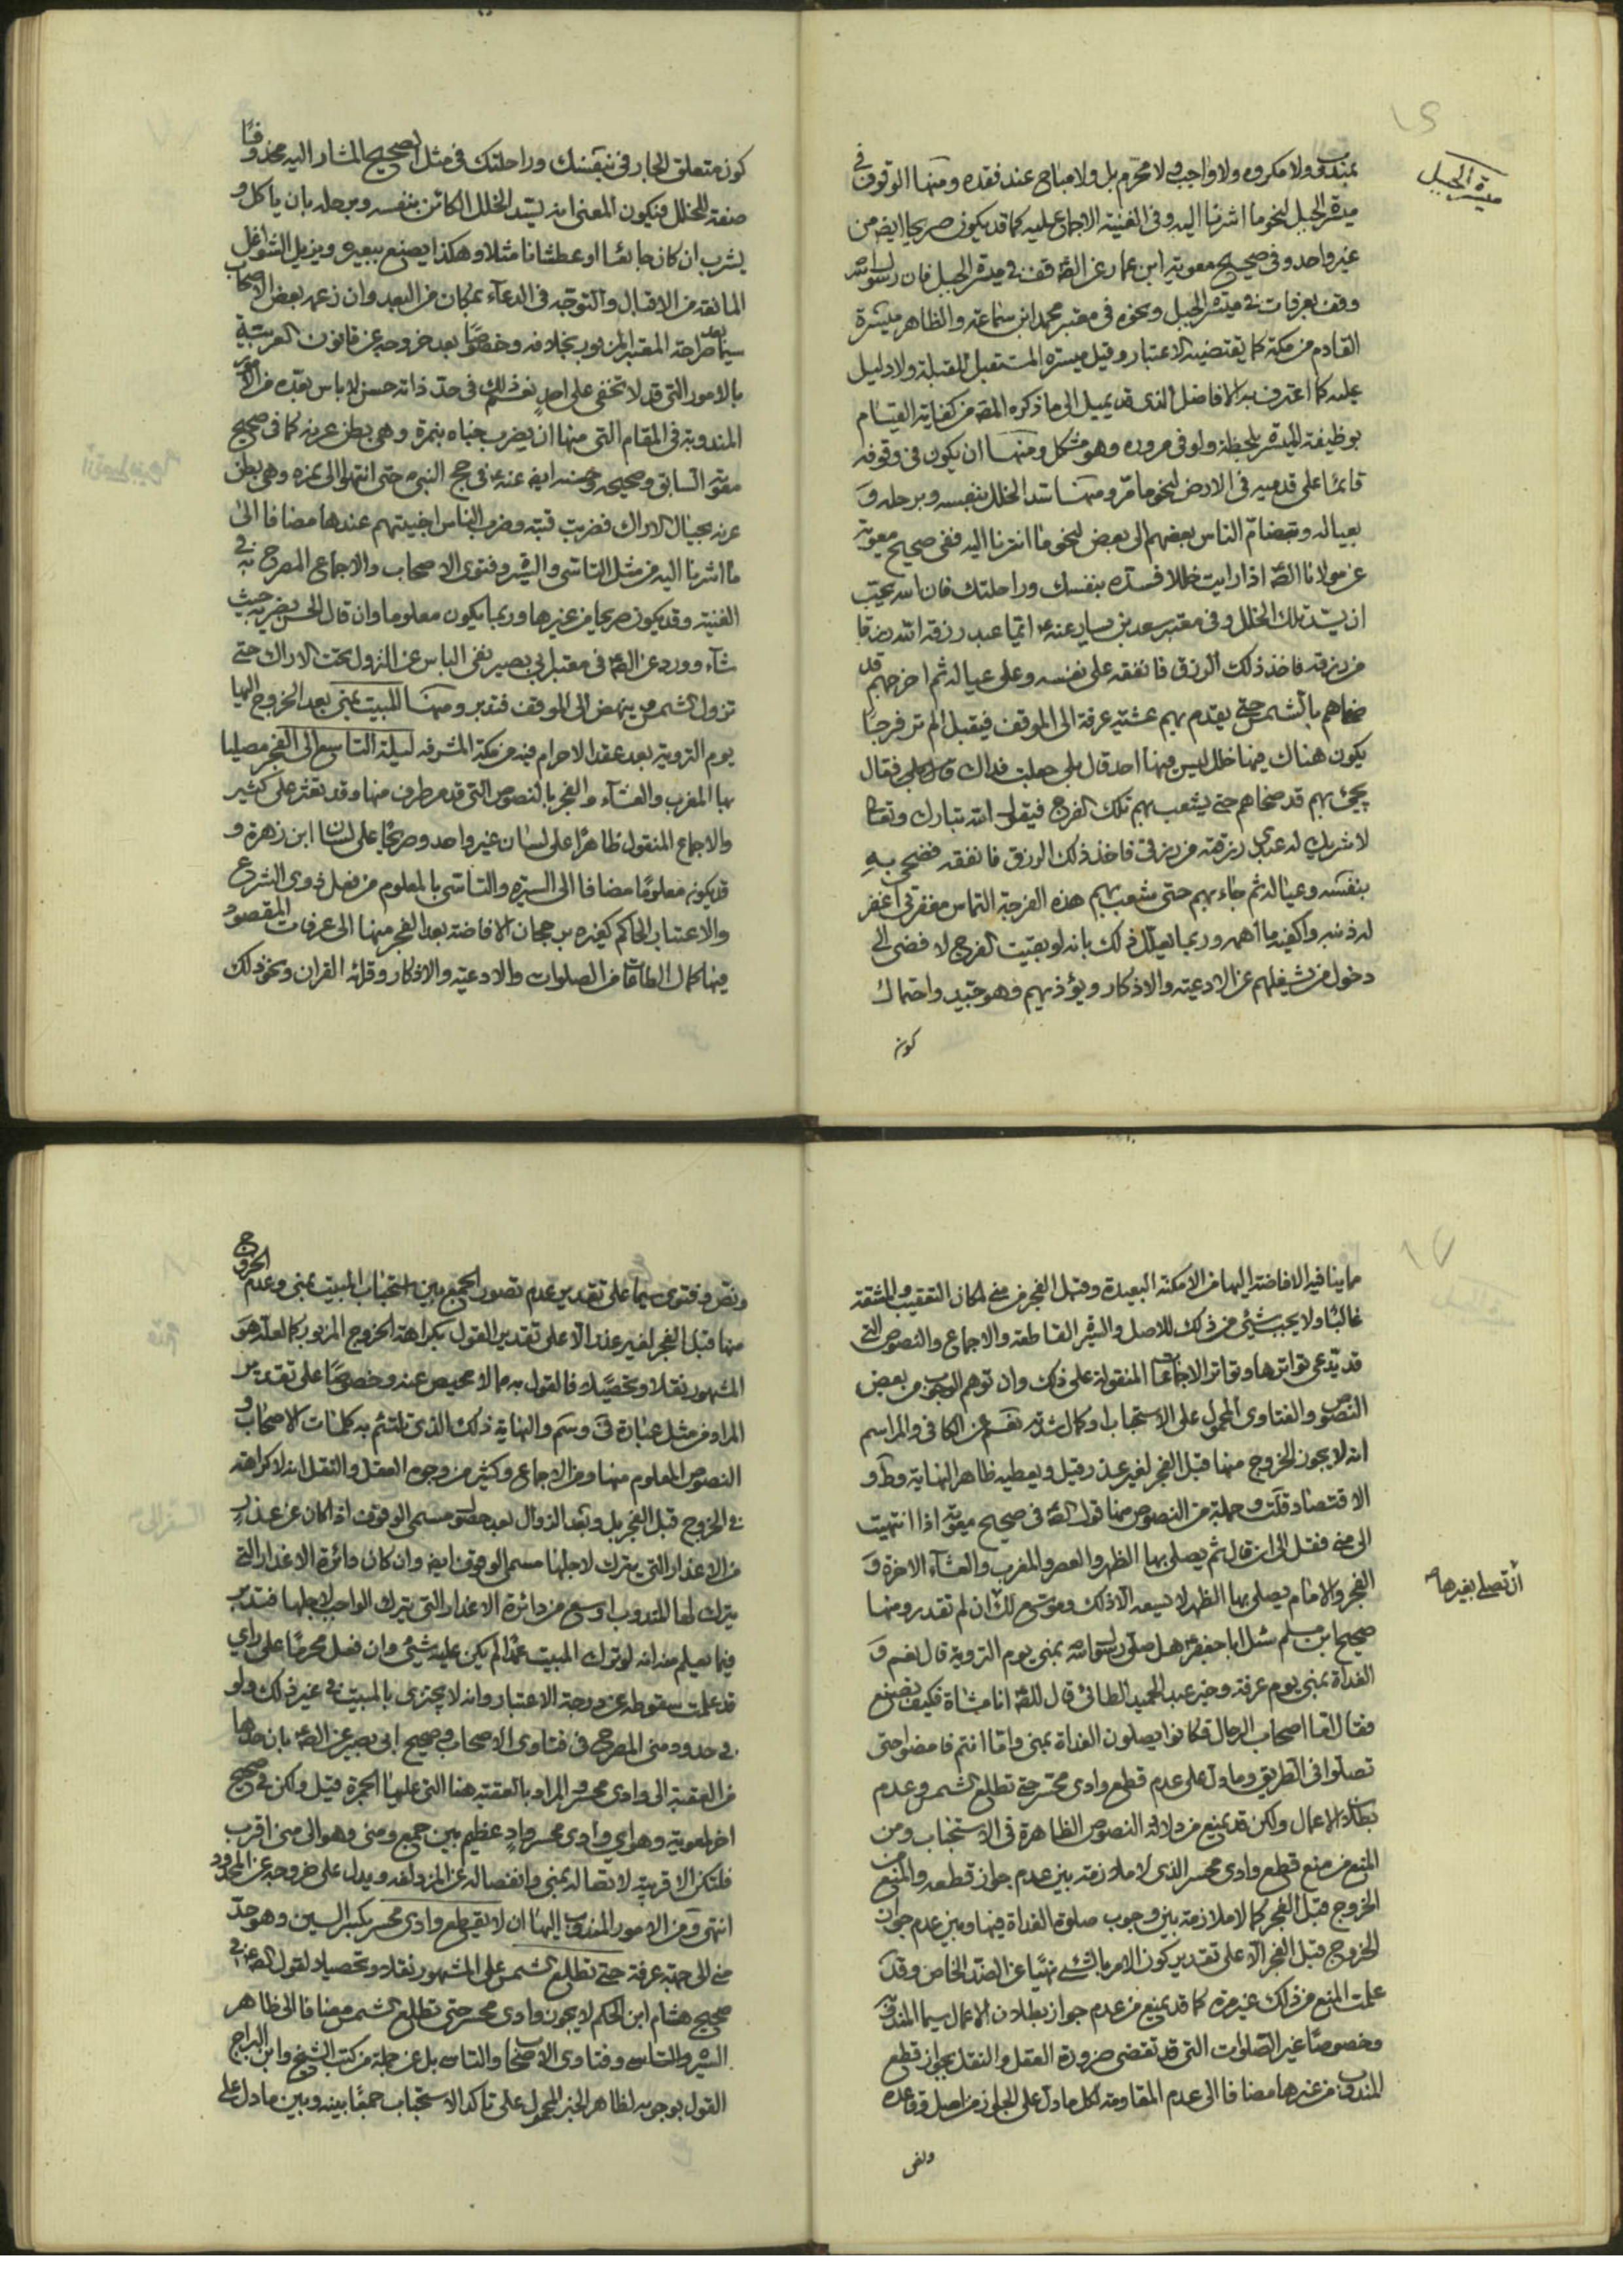 ميسرة الجبل
بمندوب ولا مكروه ولا واجب ولا محرم بل ولا مباح عند فقده ومنها الوقوف في
ميسرة الجبل لنحو ما اشرنا اليه وفى الغنية الاجماع عليه كما قد يكون صريحا ايضا من
غير واحد وفى صحيح معوية ابن عمار عن الصَّ قف في ميسرة الجبل فان رسول الله ص
وقف بعرفات في ميسرة الجبل ونحوه فى معتبر محمد ابن سماعة والظاهر ميسرة
القادم من مكة كما يقتضيه الاعتبار وقيل ميسرة المستقبل للقبلة ولا دليل
عليه كما اعترف به الافاضل الذى قد يميل الى ما ذكره المصَ من كفاية القيام
بوظيفة الميسرة بلحظة ولو فى مروره وهو مشكل ومنها ان يكون فى وقوفه
قائما على قدميه فى الارض لنحو ما مرّ ومنها سد الخلل بنفسه وبرحله وَ
بعياله وتضامّ الناس بعضهم الى بعض لنحو ما اشرنا اليه ففى صحيح معوية
عن مولانا الصَّ اذا رايت خللا فسدّه بنفسك وراحلتك فان الله يحبّ
ان يسدّ تلك الخلل وفى معتبر سعد بن يسار عنه ع ايّما عبد رزقه الله رزقا
من رزقه فاخذ ذلك الرزق فانفقه على نفسه وعلى عياله ثم اخرجهم قد
ضحاهم بالشمس حتى يقدم بهم عشية عرفة الى الموقف فيقبل الم تر فرجًا
يكون هناك فيها خلل ليس فيها احد قال بلى جعلت فداك قال بلى فقال
يجئ بهم قد ضحاهم حتى يشعب بهم تلك الفرج فيقول الله تبارك وتعالى
لا شريك له عبدى رزقته من رزقى فاخذ ذلك الرزق فانفقه فضحى به
بنفسه وعياله ثم جاء بهم حتى شعب بهم هذه الفرجة التماس مغفرتى اغفر
له ذنبه واكفيه ما اهمه وربما يعلّل ذلك بانه لو بقيت الفرج لافضى الى
دخول من يشغلهم عن الادعية والاذكار ويؤذيهم وهو جيّد واحتمال
كون
كون متعلق الجار فى بنفسك وراحلتك فى مثل الصحيح المشار اليه محذوفًا
صفة للخلل فيكون المعنى انه يسدّ الخلل الكائن بنفسه وبرحله بان ياكل و
يشرب ان كان جائعًا او عطشانا مثلا وهكذا يصنع ببعيره ويزيل الشواغل
المانعة من الاقبال والتوجّه فى الدعآء بمكان من البعد وان زعمه بعض الاصحاب
سيّما بعد صراحة المعتبر المزبور بخلافه وخصوصًا بعد خروجه عن قانون العربية
بالامور التى قد لا تخفى على احدٍ نعم ذلك فى حدّ ذاته حسن لا باس بعدّه من الامور
المندوبة فى المقام التى منها ان يضرب خباه بنمرة وهى بطن عرنة كما فى صحيح
معوية السابق وصحيحه وحسنه ايضا عنه ع فى حج النبى ص حتى انتهوا الى نمره وهى بطن
عرنه بحيال الاراك فضربت قبته وضرب الناس اخبيتهم عندها مضافا الى
ما اشرنا اليه من مثل التاسّى والسّيره وفتوى الاصحاب والاجماع المصرح به فى
الغنية وقد يكون صريحا من غيرها وربما يكون معلوما وان قال الحسن يضربه حيث
شآء وورد عن الصَّ فى معتبر ابى بصير نفى الباس عن النزول تحت الاراك حتى
تزول الشمس ثم ينهض الى الموقف فتدبر ومنها المبيت بمنى بعد الخروج اليها
يوم التروية بعد عقد الاحرام فيه من مكة المشرفه ليلة التاسع الى الفجر مصليا
بها المغرب والعشآء والفجر بالنصوص التى قد مر طرف منها وقد تعثر على كثير
والاجماع المنقول ظاهرًا على لسان غير واحد وصريحًا على لسان ابن زهرة و
قد يكون معلومًا مضافا الى السيره والتاسّى بالمعلوم من فعل ذوى الشرع
والاعتبار الحاكم كغيره برجحان الافاضة بعد الفجر منها الى عرفات المقصود
فيها كمال الطاقات من الصلوات والادعية والاذكار وقرائه القران ونحو ذلك
ان تصلے بغيرها
مما ينافيه الافاضة اليها من الامكنة البعيدة وقبل الفجر من منى لمكان التعقيب والمشقة
غالبًا ولا يجب شيئ من ذلك للاصل والسيره القاطعة والاجماع والنصوص التى
قد يدّعى تواترها وتواتر الاجماعات المنقولة على ذلك وان توهم الوجوب من بعض
النصوص والفتاوى المحمول على الاستحباب او كمال شدته نعم عن الكافى والمراسم
انه لا يجوز الخروج منها قبل الفجر لغير عذر وقيل ويعطيه ظاهر النهاية وط و
الاقتصاد قلت وجملة من النصوص منها قول الصَّ فى صحيح معوية اذا انتهيت
الى منى فقل الى ان قال ثم يصلى بها الظهر والعصر والمغرب والعشآء الاخرة وَ
الفجر والامام يصلى بها الظهر لا يسعه الا ذلك وموسّع لك ان لم تقدر ومنها
صحيح ابن مسلم سئل ابا جعفر ع هل صلّى رسول الله بمنى يوم التروية قال نعم وَ
الغداة بمنى يوم عرفة وخبر عبد الحميد الطائى قال للصَّ انا مشاة فكيف نصنع
فقال امّا اصحاب الرحال فكانوا يصلون الغداة بمنى وامّا انتم فامضوا حتى
تصلّوا فى الطريق وما دلّ على عدم قطع وادى محسّر حتى تطلع الشمس وعدم
بطلان الاعمال ولكن قد يمنع من دلالة النصوص الظاهرة فى الاستحباب ومن
المنع من منع قطع وادى محسر الذى لا ملازمة بين عدم جواز قطعه والمنع من
الخروج قبل الفجر كما لا ملازمة بين وجوب صلوة الغداة فيها وبين عدم جواز
الخروج قبل الفجر الّا على تقدير كون الامر بالشئ نهيًا عن الضدّ الخاص وقد
علمت المنع من ذلك غير مرة كما قد يمنع من عدم جواز بطلان الاعمال سيما المندوبة
وخصوصًا غير الصّلوات التى قد تقضى ضرورة العقل والنقل بجواز قطع
المندوب من غيرها مضافا الى عدم المقاومة لكل ما دلّ على الجواز من اصل وقاعده
ونص
ونص وفتوى سيما على تقدير عدم تصور الجمع بين استحباب المبيت بمنى وعدم الخروج
منها قبل الفجر لغير عذر الّا على تقدير القول بكراهة الخروج المزبور كما لعلّه هوَ
المشهور نقلا وتحصيلا فالقول به مما لا محيص عنه وخصوصًا على تقدير
المراد من مثل عبارة ق وسم والنهاية ذلك الذى تلتئم به كلمات الاصحاب و
النصوص المعلوم منها ومن الاجماع وكثير من وجوه العقل والنقل انه لا كراهة
في الخروج قبل الفجر بل وبعد الزوال بعد حصول مسمى الوقوف اذا كان عن عذرٍ
من الاعذار التى يترك لاجلها مسمى الوقوف ايضا وان كان دائرة الاعذار التى
يترك لها المندوب اوسع من دائرة الاعذار التى يترك الواجب لاجلها فتدبر
فيما يعلم منه انه لو ترك المبيت عمدًا لم يكن عليه شئ وان فعل محرمًا على راى
قد علمت سقوطه عن درجة الاعتبار وانه لا يجتزى بالمبيت فى غير ذلك ولو
فى حدود منى المصرح فى فتاوى الاصحاب وصحيح ابى بصير عن الصَّ بان حدها
من العقبة الى وادى محسر والمراد بالعقبة هنا التى عليها الجمرة قيل ولكن في صحيح
اخر لمعوية وهو اى وادى محسر وادٍ عظيم بين جمع ومنى وهو الى منى اقرب
فلتكن الاقربية لاتصاله بمنى وانفصاله عن المزدلفه ويدل على خروجه عن المحدود
انتهى ومن الامور المندوب اليها ان لا يقطع وادى محسر بكسر السين وهو حدّ
منى الى جهة عرفة حتى تطلع الشمس على المشهور نقلا وتحصيلا لقول الصَّ فى
صحيح هشام ابن الحكم لا يجوز وادى محسر حتى تطلع الشمس مضافا الى ظاهر
السيره والتاسى وفتاوى الاصحاب والتاسى بل عن جملة من كتب الشيخ وابن البراج
القول بوجوبه لظاهر الخبر المحمول على تاكد الاستحباب جمعًا بينه وبين ما دلّ على